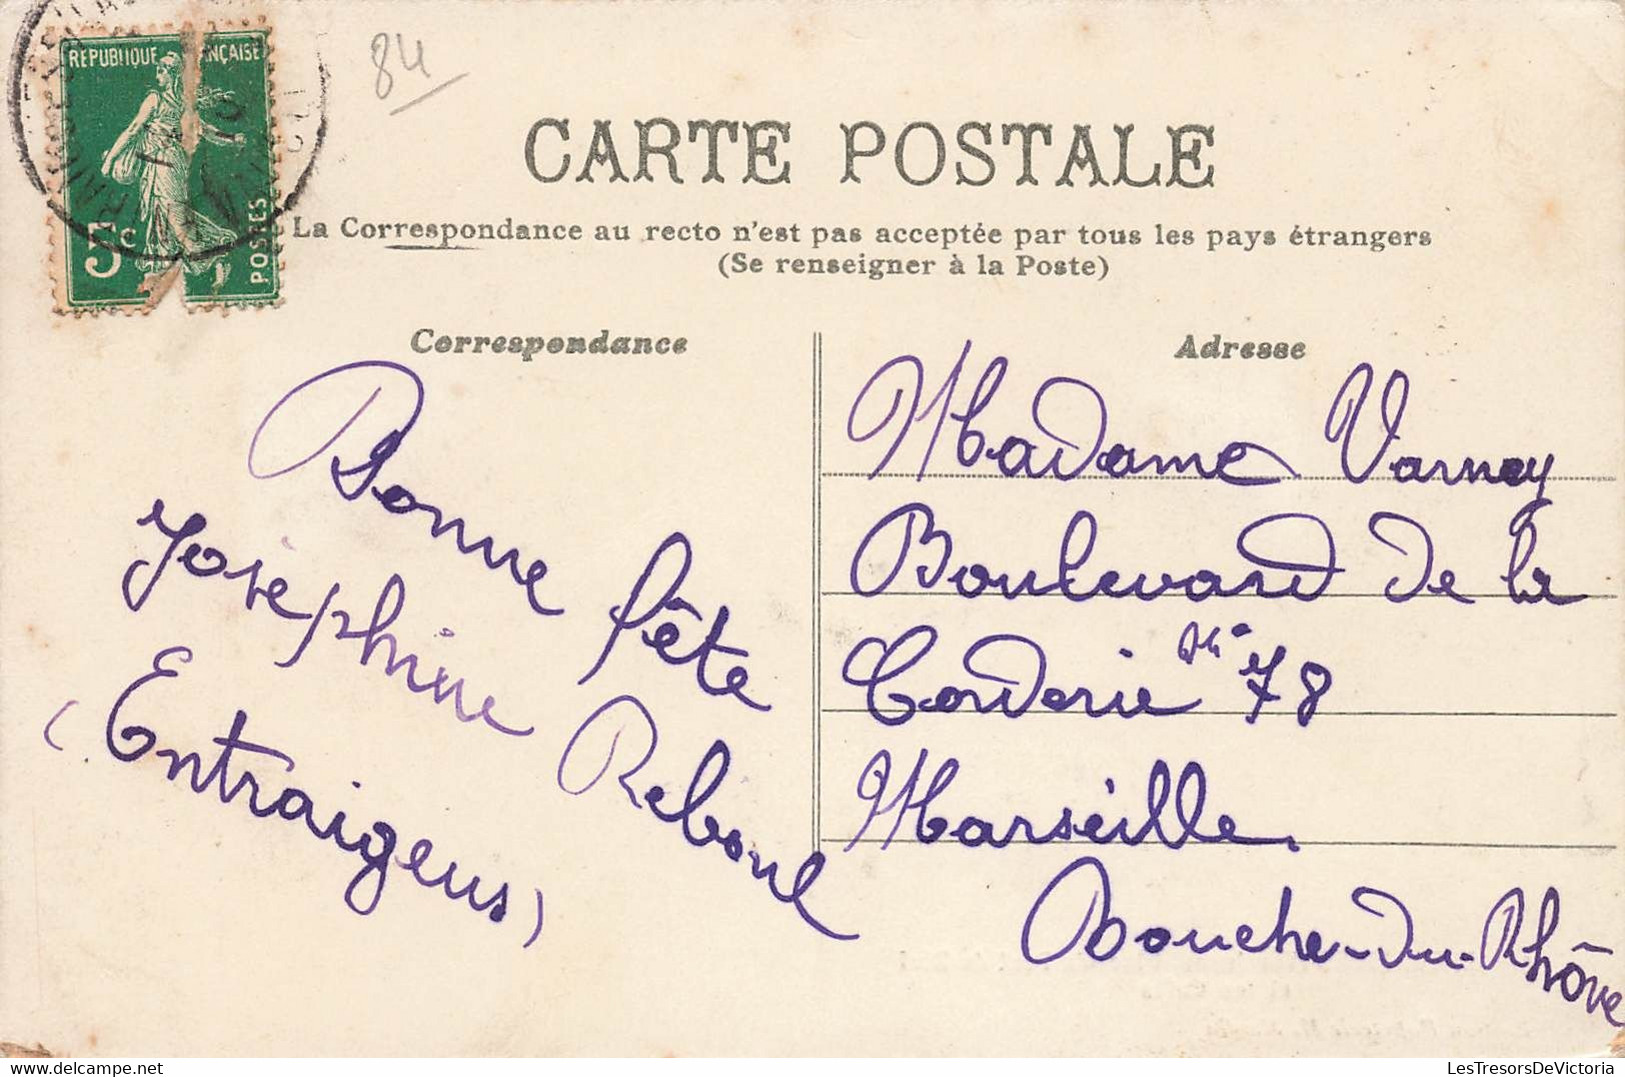 RÉPUBLIQUE FRANÇAISE
5c
POSTES
84
CARTE POSTALE
La Correspondance au recto n'est pas acceptée par tous les pays étrangers
(Se renseigner à la Poste)
Correspondance
Bonne fête
Joséphine Reboul
(Entraigues)
Adresse
Madame Varney
Boulevard de la
Corderie 78
Marseille.
Bouche-du-Rhône
LesTresorsDeVictoria